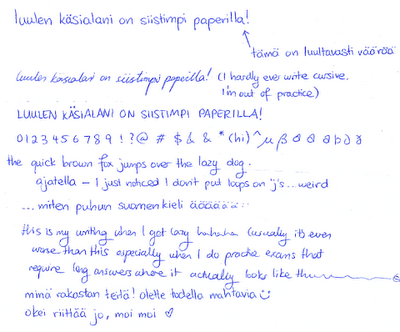 luulen käsialani on siistimpi paperilla!
tämä on luultavasti väärää
luulen käsialani on siistimpi paperilla! (I hardly ever write cursive.
I'm out of practice)
LUULEN KÄSIALANI ON SIISTIMPI PAPERILLA!
0123456789!?@ # $ & & * (hi) ^ μ β
the quick brown fox jumps over the lazy dog.
ajatella – I just noticed I don't put loops on 'j's...weird
...miten puhun suomen kieli äääääää
this is my writing when I get lazy hahaha (usually it's even
worse than this especially when I do practice exams that
require long answers where it actually looks like th
minä rakastan teitä! olette todella mahtavia ☺
okei riittää jo, moi moi ♡